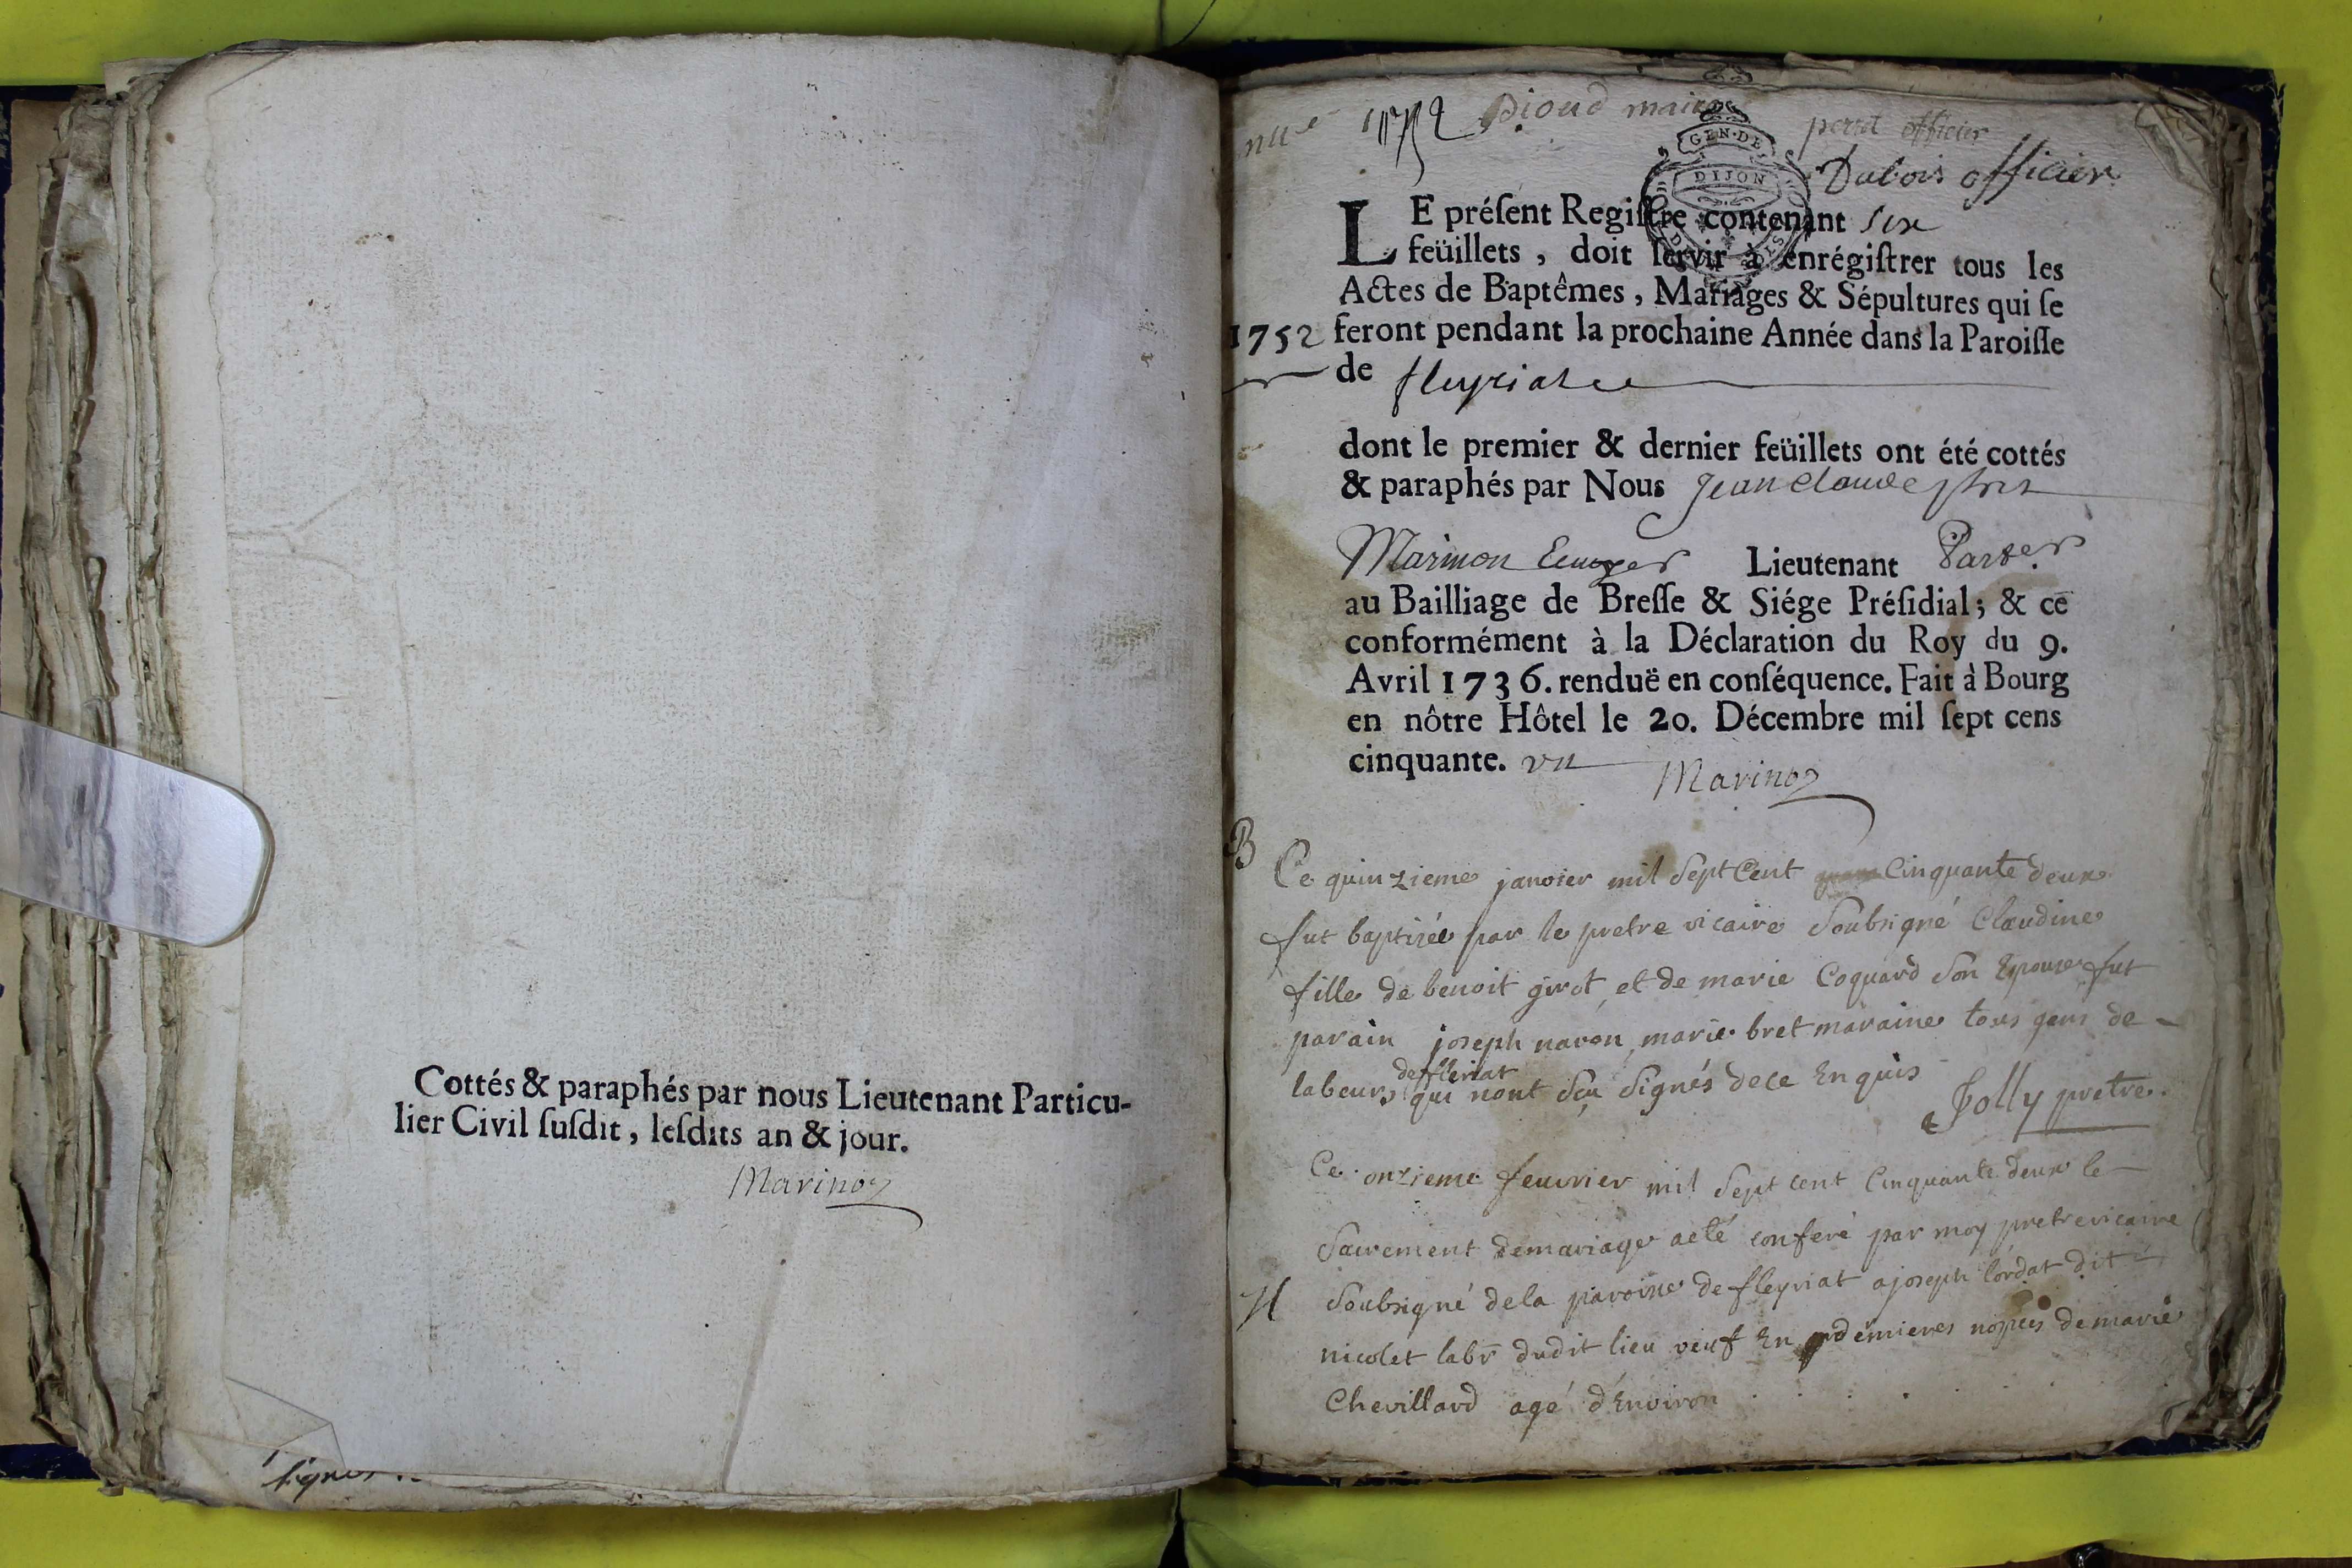 Cottés & paraphés par nous Lieutenant Particu-
lier Civil ſuſdit, leſdits an & jour.
Marinon
signer
1752 Pioud maire
perret officier
Dubois officier
GEN·DE
DIJON
LE préſent Regiſtre contenant six
feüillets, doit ſervir à enrégiſtrer tous les
Actes de Baptêmes, Mariages & Sépultures qui ſe
1752 feront pendant la prochaine Année dans la Paroiſſe
de fleyriat
dont le premier & dernier feüillets ont été cottés
& paraphés par Nous Jean Claude
Marinon Ecuyer Lieutenant Par.er
au Bailliage de Breſſe & Siége Préſidial; & ce
conformément à la Déclaration du Roy du 9.
Avril 1736. renduë en conſéquence. Fait à Bourg
en nôtre Hôtel le 20. Décembre mil ſept cens
cinquante. vn
Marinon
B
Ce quinzieme janvier mil Sept Cent Cinquante deux
fut baptisée par le pretre vicaire Soubsigné Claudine
fille de benoit girot, et de marie Coquard Son Epouse fut
parain joseph navon, marie bret maraine tous gens de
de fleriat
labeurs qui nont Sçu Signés de ce Enquis
Jolly pretre.
Ce onzieme feuvrier mil Sept cent Cinquante deux le
Sacrement de mariage a eté conferé par moy pretre vicaire
M Soubsigné de la paroisse de fleyriat a joseph lordat dit
nicolet labr dudit lieu veuf En demieres nopces de marie
Chevillard agé d'Environ